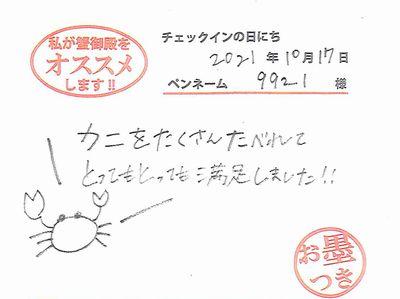 私が蟹御殿を
オススメ
します!!
チェックインの日にち
2021 年 10月 17日
ペンネーム 9921 様
カニをたくさんたべれて
とってもとっても満足しました!!
お墨
つき